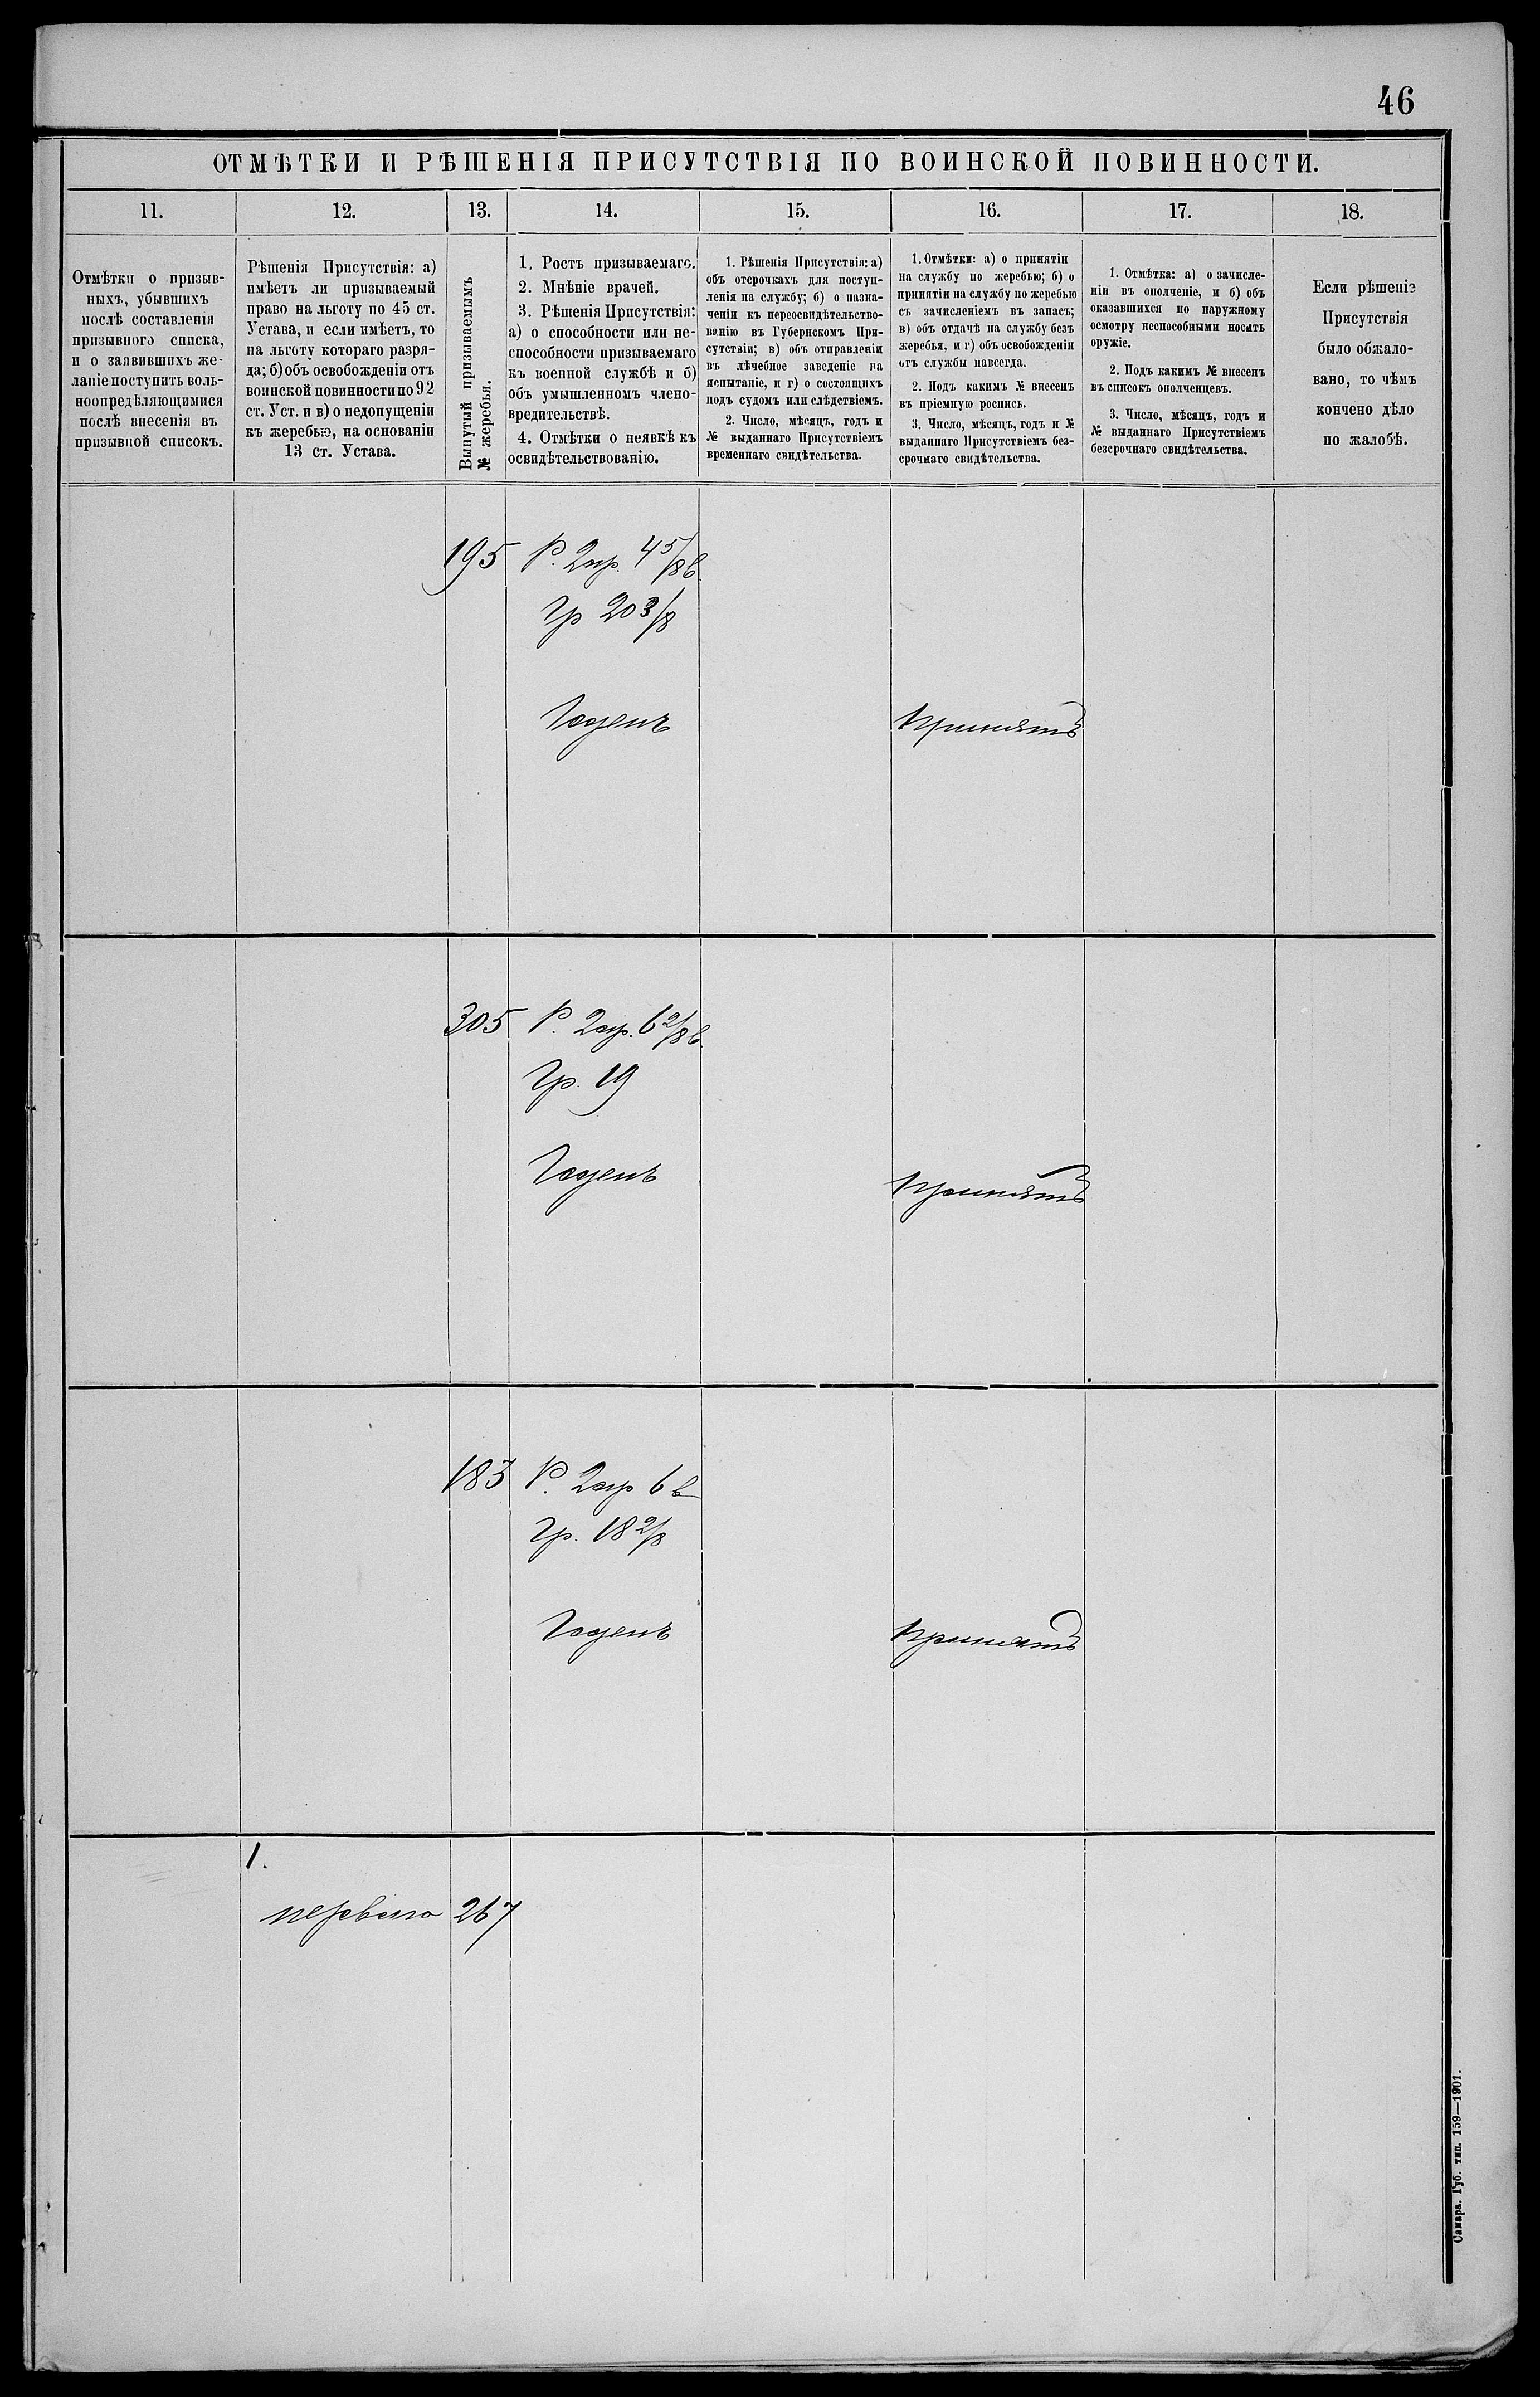 46
ОТМѢТКИ И РѢШЕНІЯ ПРИСУТСТВІЯ ПО ВОИНСКОЙ ПОВИННОСТИ.
11.
12.
13.
14.
15.
16.
17.
18.
Отмѣтки о призыв-
ныхъ, убывшихъ
послѣ составленія
призывного списка,
и о заявившихъ же-
ланіе поступить воль-
ноопредѣляющимися
послѣ внесенія въ
призывной списокъ.
Рѣшенія Присутствія: а)
имѣетъ ли призываемый
право на льготу по 45 ст.
Устава, и если имѣетъ, то
на льготу котораго разря-
да; б) объ освобожденіи отъ
воинской повинности по 92
ст. Уст. и в) о недопущеніи
къ жеребью, на основаніи
13 ст. Устава.
Вынутый призываемымъ
№ жеребья.
1. Ростъ призываемаго.
2. Мнѣніе врачей.
3. Рѣшенія Присутствія:
а) о способности или не-
способности призываемаго
къ военной службѣ и б)
объ умышленномъ члено-
вредительствѣ.
4. Отмѣтки о неявкѣ къ
освидѣтельствованію.
1. Рѣшенія Присутствія: а)
объ отсрочкахъ для поступ-
ленія на службу; б) о назна-
ченіи къ переосвидѣтельство-
ванію въ Губернскомъ При-
сутствіи; в) объ отправленіи
въ лѣчебное заведеніе на
испытаніе, и г) о состоящихъ
подъ судомъ или слѣдствіемъ.
2. Число, мѣсяцъ, годъ и
№ выданнаго Присутствіемъ
временнаго свидѣтельства.
1. Отмѣтки: а) о принятіи
на службу по жеребью; б) о
принятіи на службу по жеребью
съ зачисленіемъ въ запасъ;
в) объ отдачѣ на службу безъ
жеребья, и г) объ освобожденіи
отъ службы навсегда.
2. Подъ какимъ № внесенъ
въ пріемную роспись.
3. Число, мѣсяцъ, годъ и №
выданнаго Присутствіемъ без-
срочнаго свидѣтельства.
1. Отмѣтка: а) о зачисле-
ніи въ ополченіе, и б) объ
оказавшихся по наружному
осмотру неспособными носить
оружіе.
2. Подъ какимъ № внесенъ
въ списокъ ополченцевъ.
3. Число, мѣсяцъ, годъ и
№ выданнаго Присутствіемъ
безсрочнаго свидѣтельства.
Если рѣшеніе
Присутствія
было обжало-
вано, то чѣмъ
кончено дѣло
по жалобѣ.
195
Р. 2 ар. 4 5/8 в.
Гр 20 3/8
Годенъ
Принятъ
305
Р. 2 ар. 6 2/8 в.
Гр. 19
Годенъ
Принятъ
183
Р. 2 ар 6 в
Гр. 18 2/8
Годенъ
Принятъ
1.
перваго
267
Самара. Губ. тип. 159—1901.